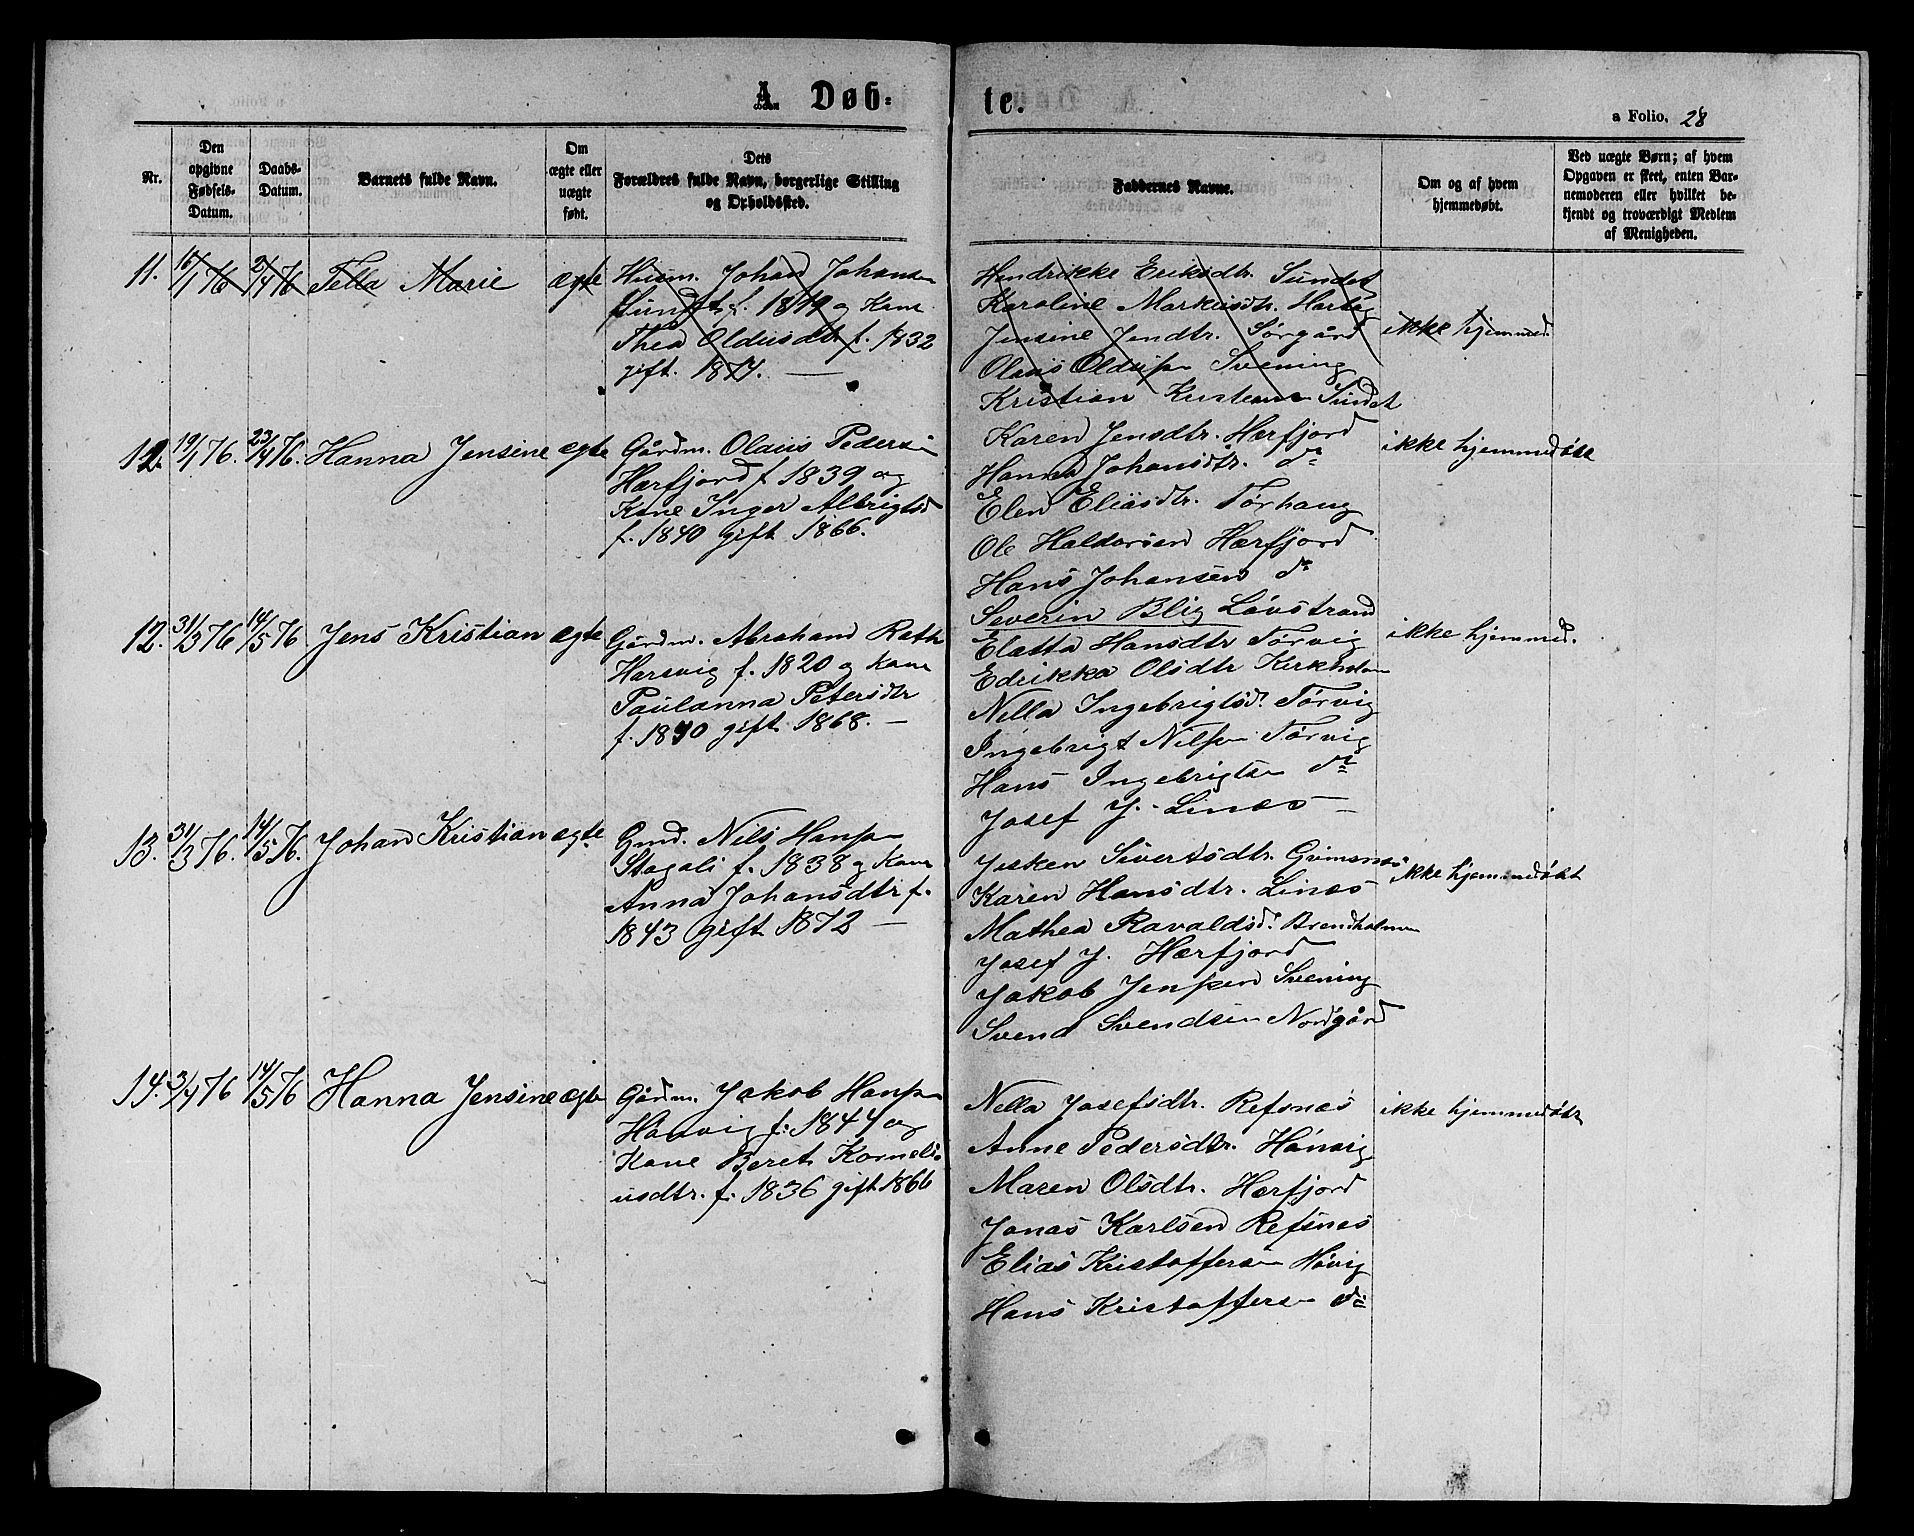 A. Døb-
te.
a Folio. 28
Nr.
Den opgivne Fødsels-Datum.
Daabs-Datum.
Barnets fulde Navn.
Om ægte eller uægte født.
Dets Forældres fulde Navn, borgerlige Stilling og Opholdssted.
Faddernes Navne.
Om og af hvem hjemmedøbt.
Ved uægte Børn; af hvem Opgaven er skeet, enten Barnemoderen eller hvilket bekjendt og troværdigt Medlem af Menigheden.
11. 16/1 76 2/4 76 Tella Marie ægte
Husm. Johan Johansen
Sundet f. 1849 og Kone
Thea Oldusdtr f. 1832
gift. 1874. —
Hendrikke Eriksdtr. Sundet
Karoline Markusdtr.
Jensine Jendtr. Sørgård
Olaus Svening
Kristian Sundet
ikke hjemmed.
12. 19/1 76. 23/4 76. Hanna Jensine ægte
Gårdm. Olaus Pedersen
Hærfjord f 1839 og
Kone Inger Albrigtsd
f. 1840 gift 1866.
Karen Jensdtr. Hærfjord
Hanna Johansdtr. do
Elen Eliasdtr. Tørhaug
Ole Haldorsen Hærfjord
Hans Johansen do
Severin Blig Løvstrand
ikke hjemmedøbt
12. 31/3 76 14/5 76 Jens Kristian ægte
Gårdm. Abraham Rath
Harsvig f. 1820 og Kone
Paulanna Petersdtr
f. 1840 gift 1868. —
Elatta Hansdtr Tørvig
Edrikka Olsdtr Kirkholm
Nella Ingebrigtsd. Tørvig
Ingebrigt Nilsen Tørvig
Hans Ingebrigtsen do
Josef J. Linæs —
ikke hjemmed.
13. 31/3 76. 14/5 76. Johan Kristian ægte
Gmd. Nils Hansen
Skagali f. 1838 og Kone
Anna Johansdtr f.
1843 gift 1872 —
Jesken Sivertsdtr. Grimsnæs
Karen Hansdtr. Linæs
Mathea Ravaldsd. Brendholmen
Josef J. Hærfjord
Jakob Jensen Svening
Svend Svendsen Nordgård
ikke hjemmedøbt
14. 3/4 76 14/5 76 Hanna Jensine ægte
Gårdm. Jakob Hansen
Hovvig f. 1844 og
Kone Beret Korneli-
usdtr. f. 1836 gift 1866
Nella Josefsdtr. Refsnæs
Anne Pedersdtr. Høvig
Maren Olsdtr. Hærfjord
Jonas Karlsen Refsnæs
Elias Kristoffersen Høvig
Hans Kristoffersen do
ikke hjemmedøbt